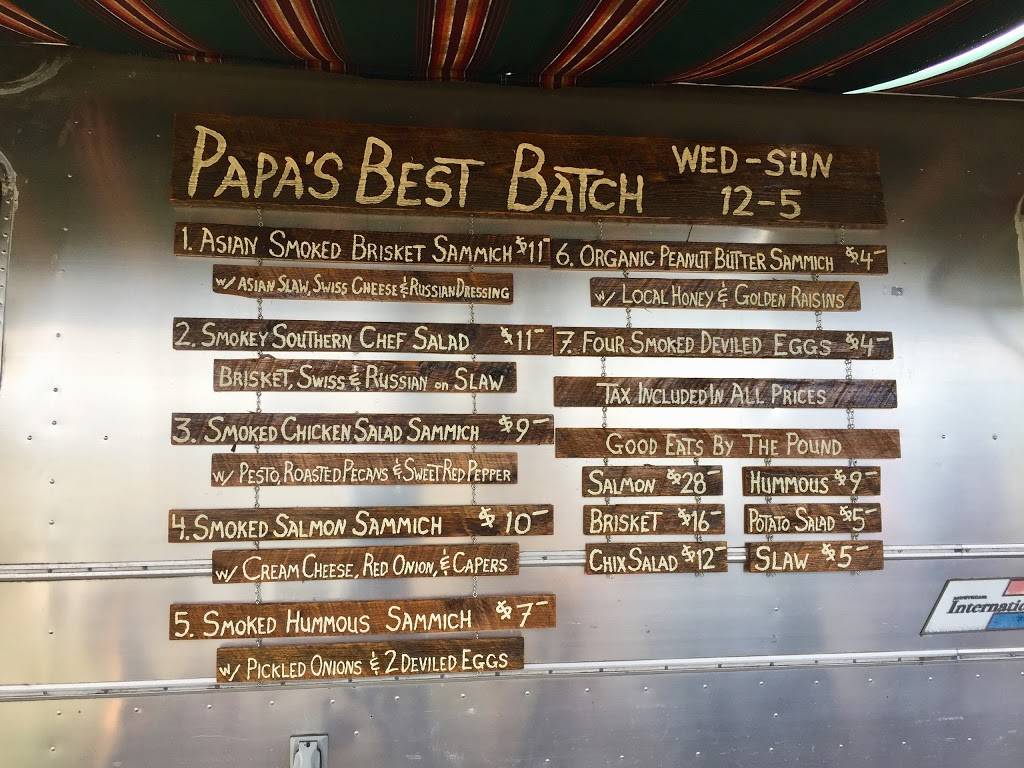 PAPA'S BEST BATCH
WED-SUN
12-5
1. ASIAN SMOKED BRISKET SAMMICH $11
W/ ASIAN SLAW, SWISS CHEESE & RUSSIAN DRESSING
2. SMOKEY SOUTHERN CHEF SALAD $11-
BRISKET, SWISS & RUSSIAN on SLAW
3. SMOKED CHICKEN SALAD SAMMICH $9-
W/ PESTO, ROASTED PECANS & SWEET RED PEPPER
4. SMOKED SALMON SAMMICH $10-
W/ CREAM CHEESE, RED ONION, & CAPERS
5. SMOKED HUMMOUS SAMMICH $7-
W/ PICKLED ONIONS & 2 DEVILED EGGS
6. ORGANIC PEANUT BUTTER SAMMICH $4-
W/ LOCAL HONEY & GOLDEN RAISINS
7. FOUR SMOKED DEVILED EGGS $4-
TAX INCLUDED IN ALL PRICES
GOOD EATS BY THE POUND
SALMON $28-
HUMMOUS $9-
BRISKET $16-
POTATO SALAD $5-
CHIX SALAD $12-
SLAW $5-